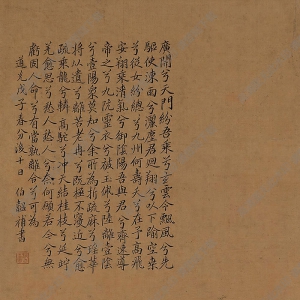 廣開兮天門紛吾乘兮玄雲令飄風兮先
驅使涷雨兮灑塵君迴翔兮以下踰空桒
兮從女紛總兮九州何壽夭兮在予高飛
安翔乘清氣兮御陰陽吾與君兮齊速導
帝之兮九阬靈衣兮被玉佩兮陸離壹陰
兮壹陽眾莫知兮余所為折疏麻兮瑤華
將以遺兮離居老冉兮既極不寖近兮愈
疏乘龍兮轔高駝兮沖天結桂枝兮延佇
羌愈思兮愁人愁人兮奈何願若今兮無
虧固人命兮有當孰離合兮可為
道光戊子春分後十日 伯韶補書